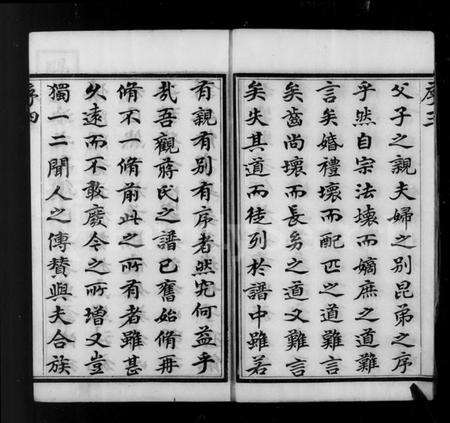 序三
父子之親夫婦之別昆弟之序
乎然自宗法壞而嫡庶之道難
言矣婚禮壞而配匹之道難言
矣齒尚壞而長幼之道又難言
矣失其道而徒列於譜中雖若
有親有別有序者然究何益乎
哉吾觀蔣氏之譜已舊始脩再
脩不一脩前此之所有者雖甚
久遠而不敢廢今之所增又豈
獨一二聞人之傳賛與夫合族
序四